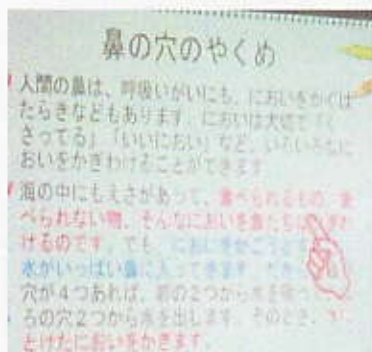 鼻の穴のやくめ
人間の鼻は、呼吸いがいにも、においをかぐは
たらきなどもあります。においは大切で「く
さってる」「いいにおい」など、いろいろなに
おいをかぎわけることができます。
海の中にもえさがあって、食べられるもの、食
べられない物、そんなにおいを魚たちは
けるのです。でも、においをかごうと
水がいっぱい鼻に入ってきます。
穴が4つあれば、前の2つから水を吸っ
ろの穴2つから水を出します。そのとき、
とけたにおいをかぎます。